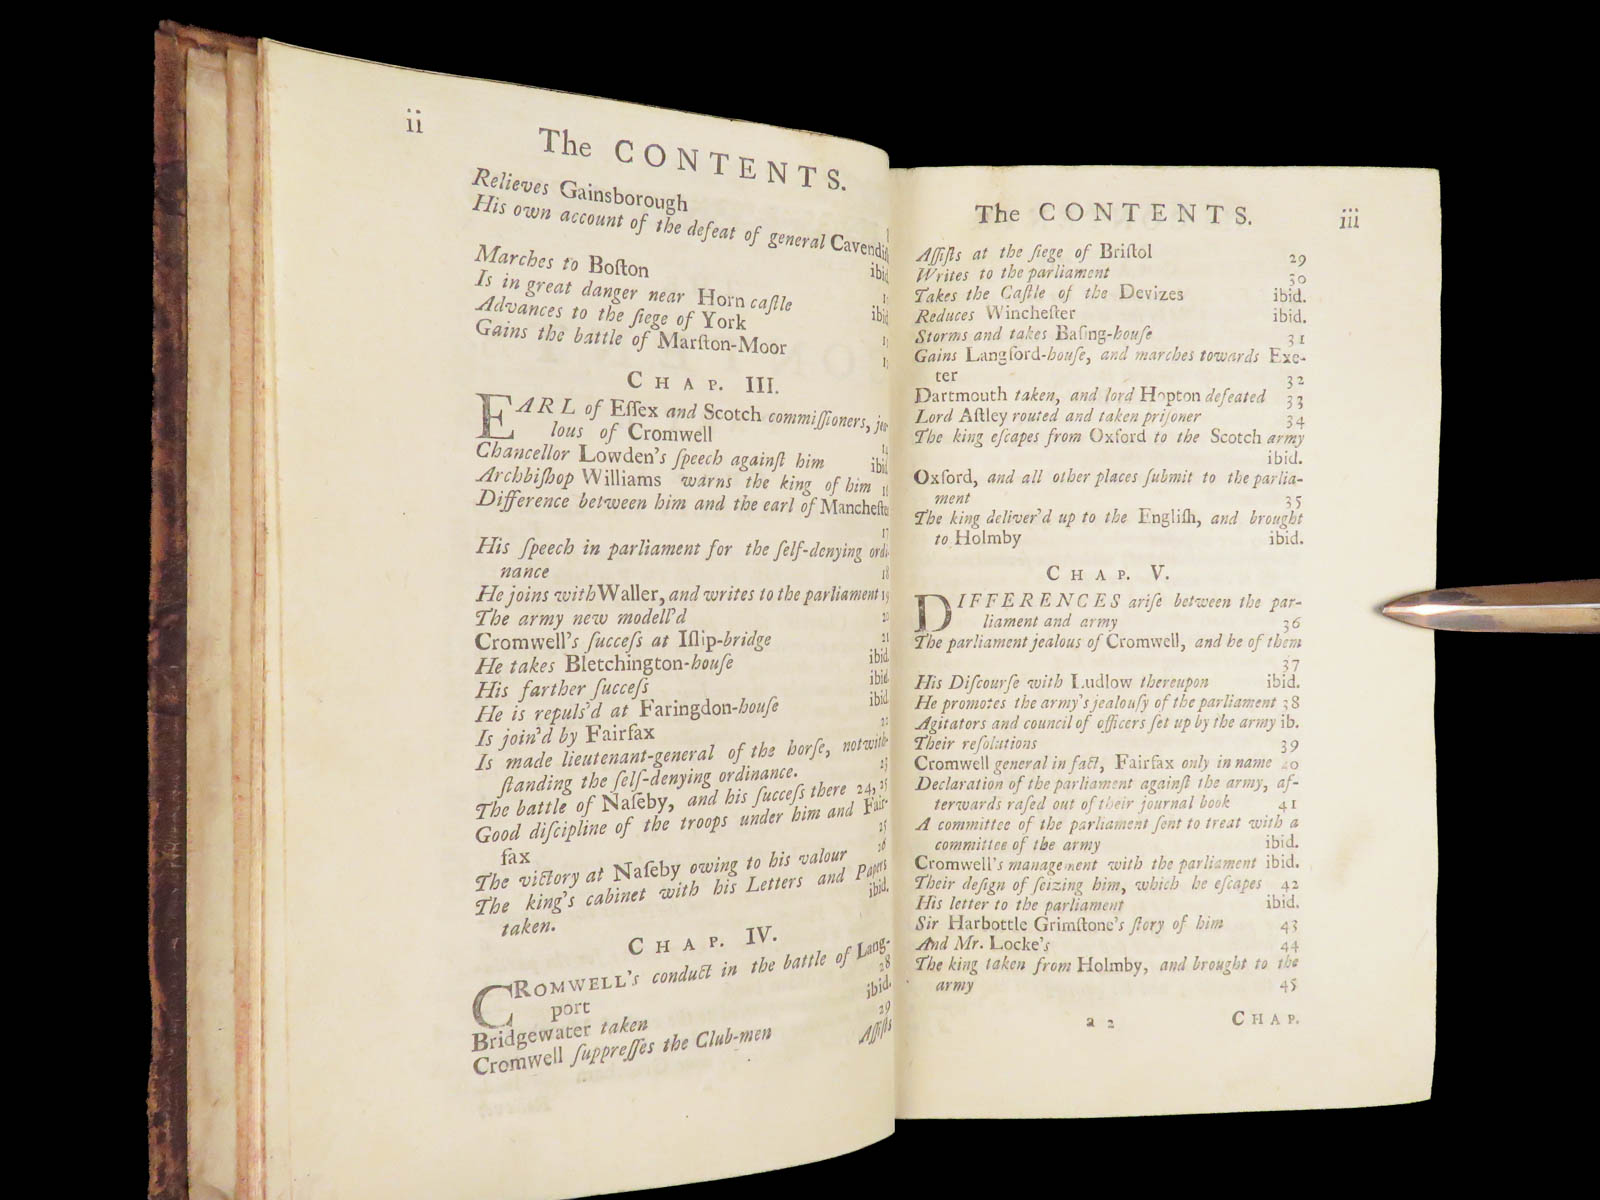 ii
The CONTENTS.
Relieves Gainsborough
His own account of the defeat of general Cavendiſh
ibid
Marches to Boſton
Is in great danger near Horn caſtle
ibid
Advances to the ſiege of York
Gains the battle of Marſton-Moor
CHAP. III.
EARL of Eſſex and Scotch commiſſioners, jea-
lous of Cromwell 14
Chancellor Lowden's ſpeech againſt him ibid
Archbiſhop Williams warns the king of him 16
Difference between him and the earl of Mancheſter
17
His ſpeech in parliament for the ſelf-denying ordi-
nance 18
He joins with Waller, and writes to the parliament 19
The army new modell'd 20
Cromwell's ſucceſs at Iſlip-bridge 21
He takes Bletchington-houſe ibid
His farther ſucceſs ibid
He is repuls'd at Faringdon-houſe ibid
Is join'd by Fairfax 22
Is made lieutenant-general of the horſe, notwith-
ſtanding the ſelf-denying ordinance. 23
The battle of Naſeby, and his ſucceſs there 24, 25
Good diſcipline of the troops under him and Fair-
fax 25
The victory at Naſeby owing to his valour 26
The king's cabinet with his Letters and Papers
taken. ibid.
CHAP. IV.
CROMWELL's conduct in the battle of Lang-
port 28
Bridgewater taken ibid.
Cromwell ſuppreſſes the Club-men 29
Aſſiſts
The CONTENTS. iii
Aſſiſts at the ſiege of Briſtol 29
Writes to the parliament 30
Takes the Caſtle of the Devizes ibid.
Reduces Wincheſter ibid.
Storms and takes Baſing-houſe 31
Gains Langford-houſe, and marches towards Exe-
ter 32
Dartmouth taken, and lord Hopton defeated 33
Lord Aſtley routed and taken priſoner 34
The king eſcapes from Oxford to the Scotch army
ibid.
Oxford, and all other places ſubmit to the parlia-
ment 35
The king deliver'd up to the Engliſh, and brought
to Holmby ibid.
CHAP. V.
DIFFERENCES ariſe between the par-
liament and army 36
The parliament jealous of Cromwell, and he of them
37
His Diſcourſe with Ludlow thereupon ibid.
He promotes the army's jealouſy of the parliament 38
Agitators and council of officers ſet up by the army ib.
Their reſolutions 39
Cromwell general in fact, Fairfax only in name 40
Declaration of the parliament againſt the army, af-
terwards raſed out of their journal book 41
A committee of the parliament ſent to treat with a
committee of the army ibid.
Cromwell's management with the parliament ibid.
Their deſign of ſeizing him, which he eſcapes 42
His letter to the parliament ibid.
Sir Harbottle Grimſtone's ſtory of him 43
And Mr. Locke's 44
The king taken from Holmby, and brought to the
army 45
a 2 CHAP.